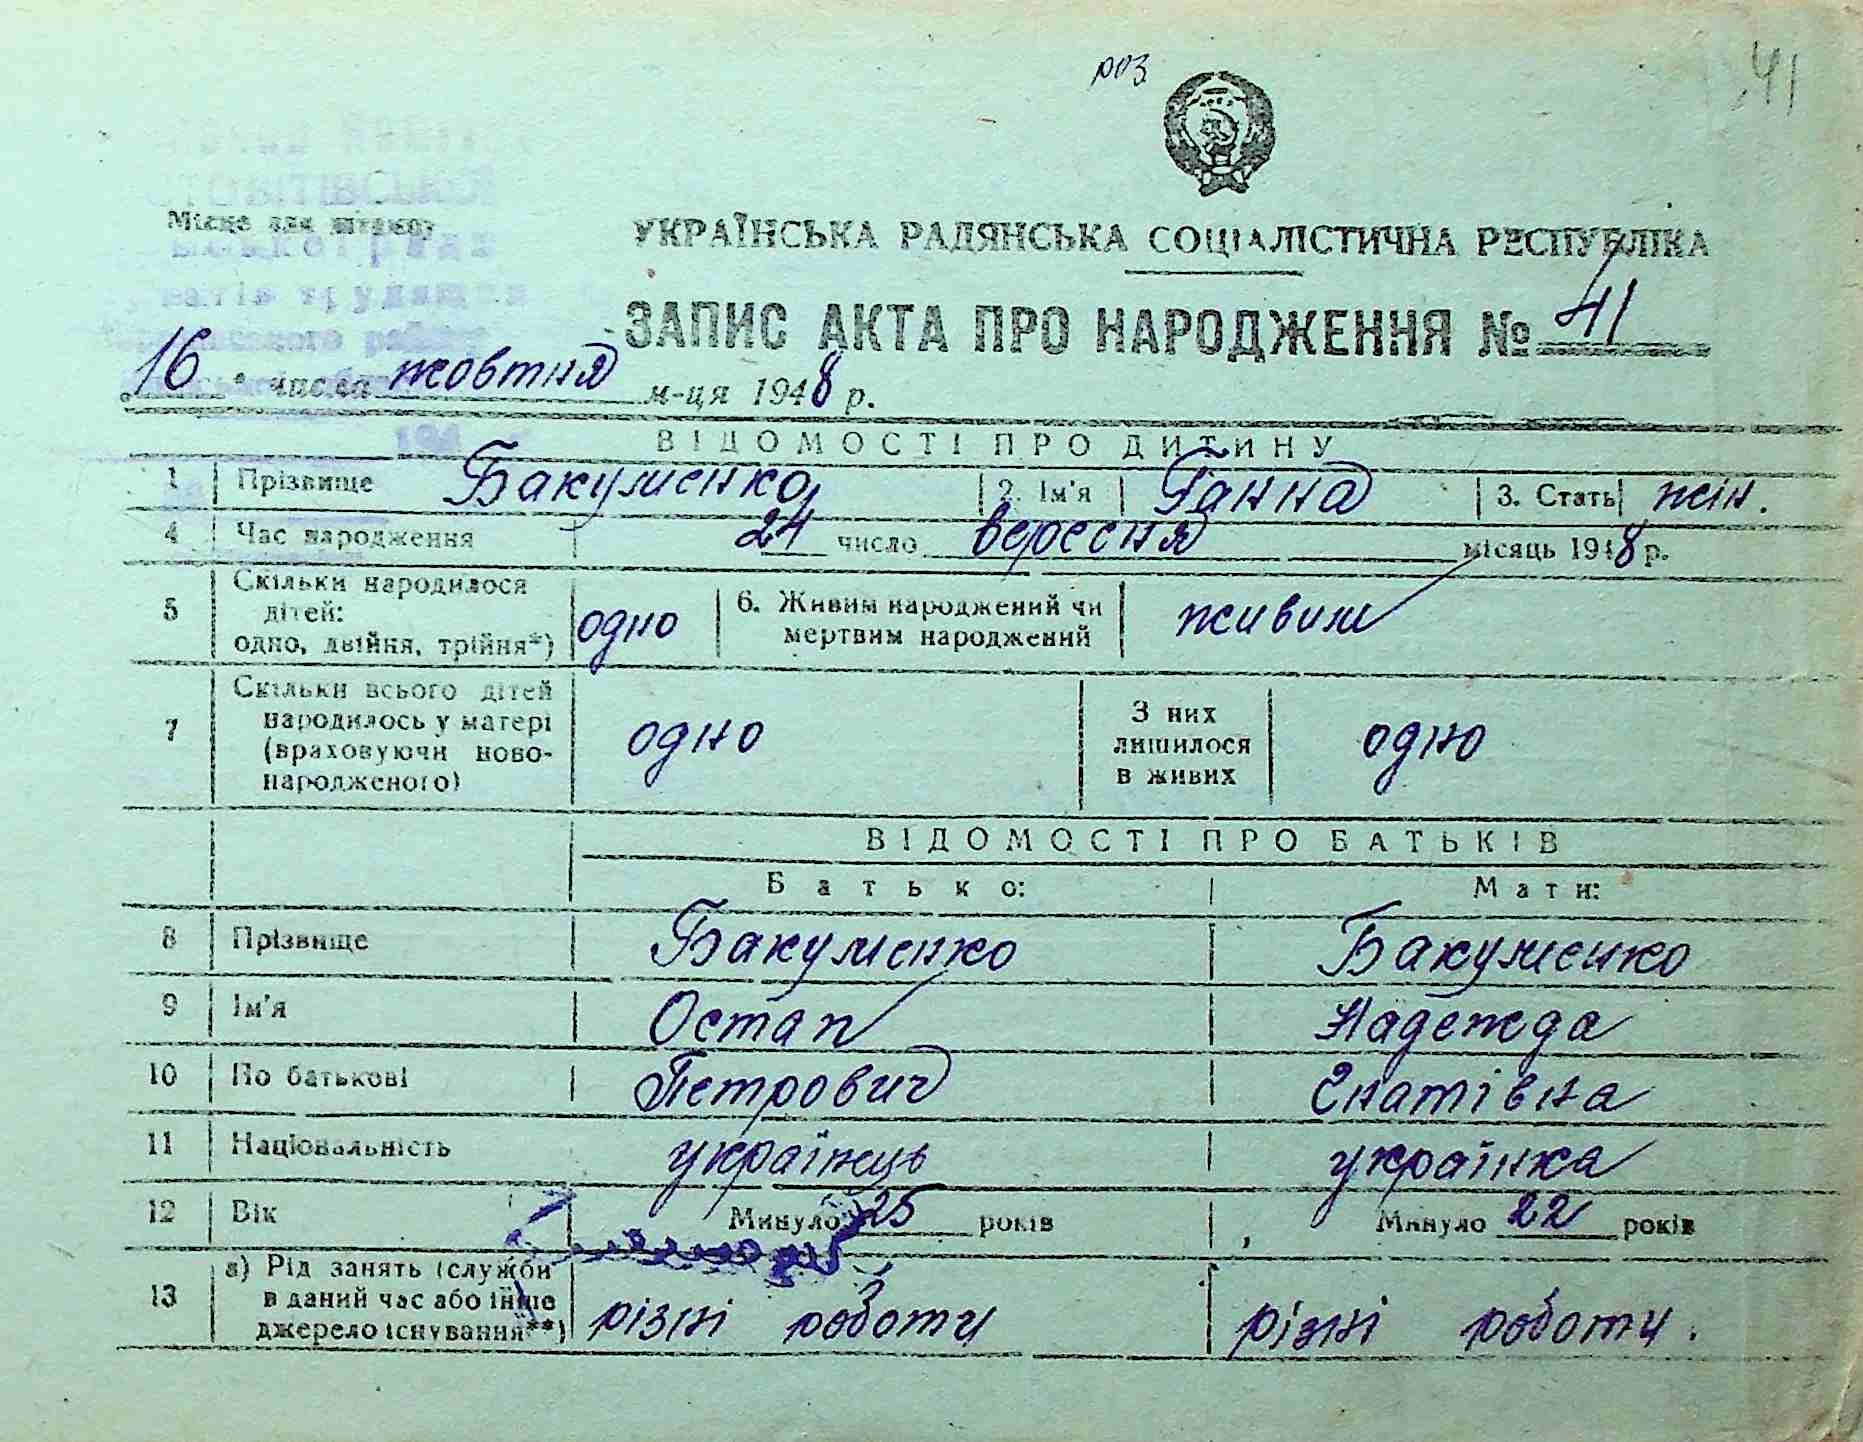 роз
41
Місце для штампу
УКРАЇНСЬКА РАДЯНСЬКА СОЦІАЛІСТИЧНА РЕСПУБЛІКА
ЗАПИС АКТА ПРО НАРОДЖЕННЯ № 41
16 числа жовтня м-ця 1948 р.
194
ВІДОМОСТІ ПРО ДИТИНУ
1 Прізвище Бакуменко 2. Ім'я Ганна 3. Стать жін.
4 Час народження 24 число вересня місяць 1948 р.
5 Скільки народилося дітей: одно, двійня, трійня*) одно 6. Живим народжений чи мертвим народжений живим
7 Скільки всього дітей народилось у матері (враховуючи новонародженого) одно З них лишилося в живих одно
ВІДОМОСТІ ПРО БАТЬКІВ
Батько: Мати:
8 Прізвище Бакуменко Бакуменко
9 Ім'я Остап Надежда
10 По батькові Петрович Гнатівна
11 Національність українець українка
12 Вік Минуло 25 років Минуло 22 років
13 а) Рід занять (служби в даний час або інше джерело існування**) різні роботи різні роботи.